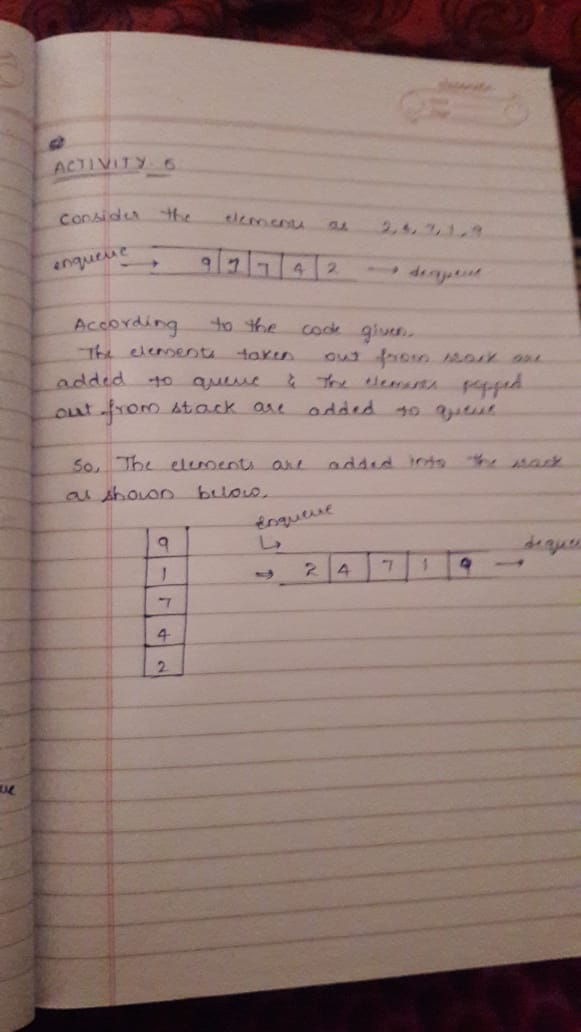 ACTIVITY. 5
Consider the elements as 2, 4, 7, 1, 9
enqueue → 9 1 7 4 2 → dequeue
According to the code given.
The elements taken out from stack are
added to queue & The elements popped
out from stack are added to queue
So, The elements are added into the stack
as shown below.
enqueue
9
1
7
4
2
→ 2 4 7 1 9 →